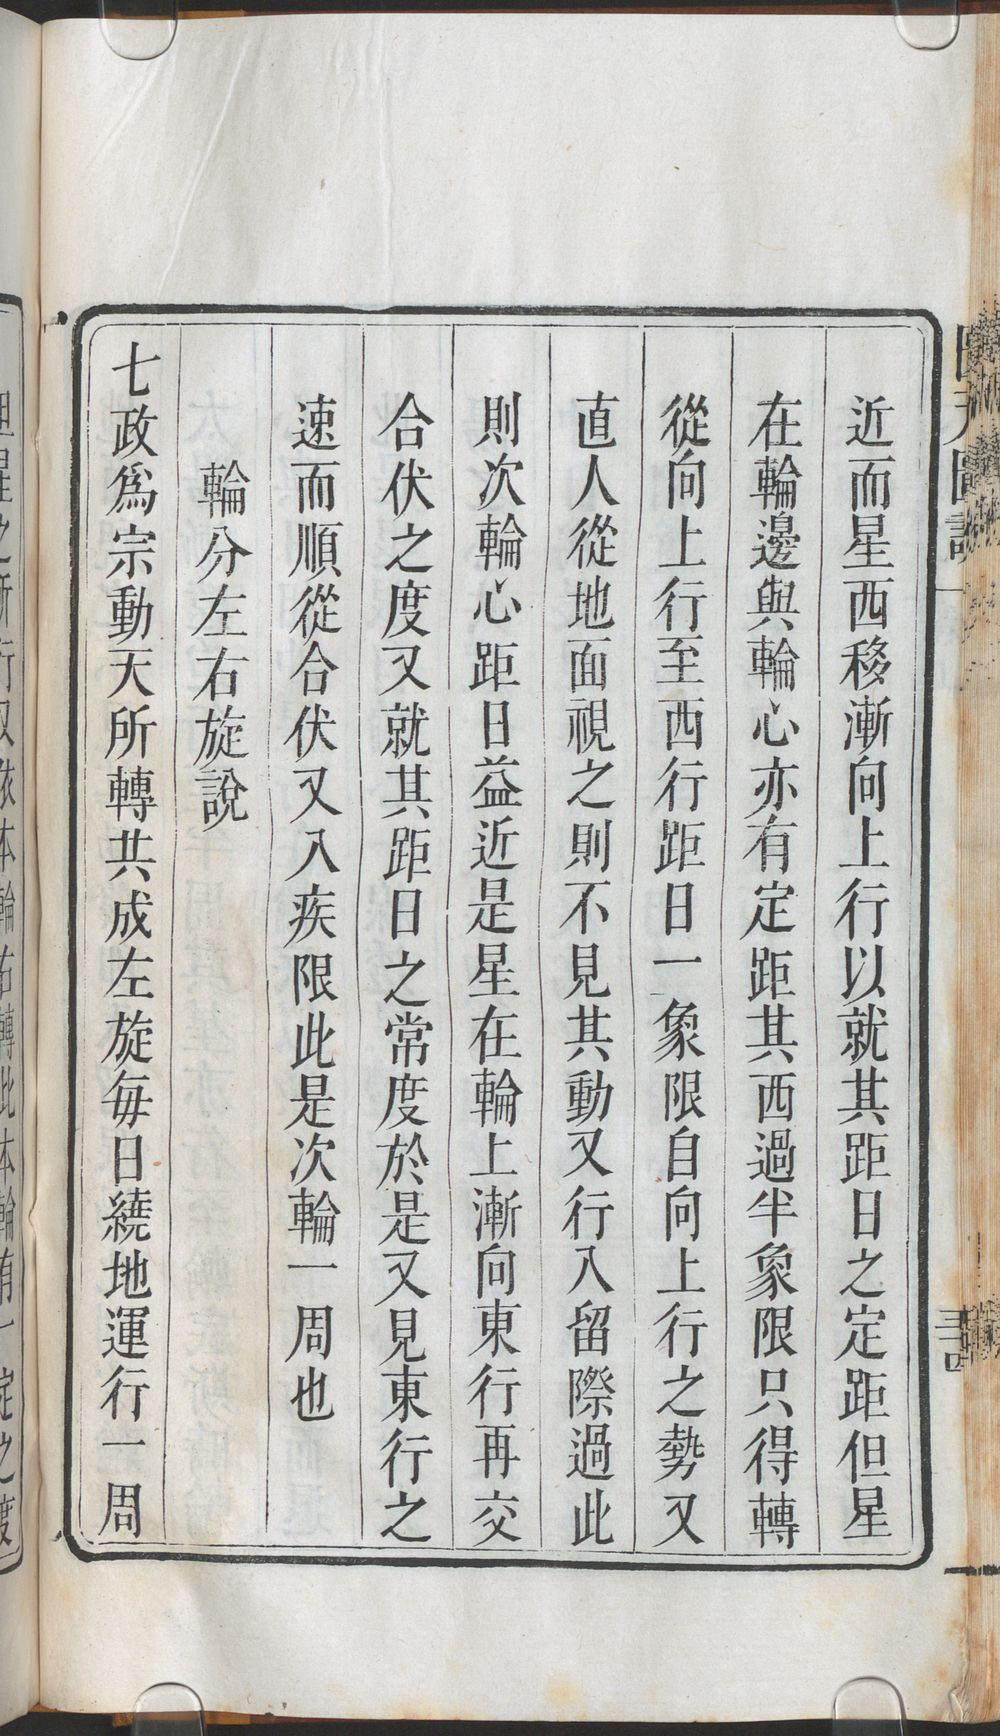 近而星西移漸向上行以就其距日之定距但星
在輪邊與輪心亦有定距其西過半象限只得轉
從向上行至西行距日一象限自向上行之勢又
直人從地面視之則不見其動又行入留際過此
則次輪心距日益近是星在輪上漸向東行再交
合伏之度又就其距日之常度於是又見東行之
速而順從合伏又入疾限此是次輪一周也
輪分左右旋說
七政爲宗動天所轉共成左旋每日繞地運行一周